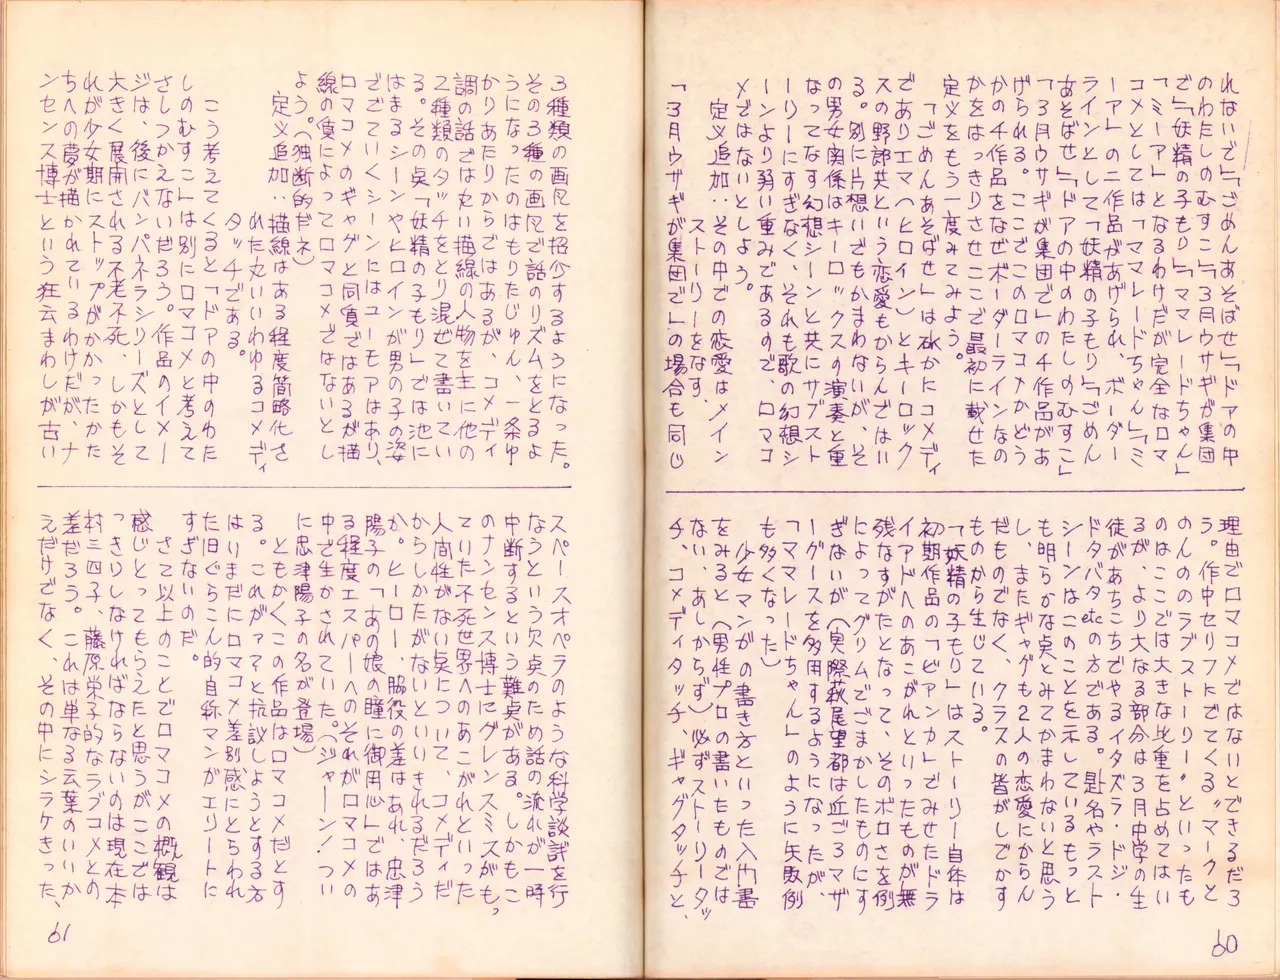 れないで」「ごめんあそばせ」「ドアの中
のわたしのむすこ」「3月ウサギが集団
で」「妖精の子もり」「ママレードちゃん」
「ミーア」となるわけだが完全なロマ
コメとしては「ママレードちゃん」「ミ
ーア」の二作品があげられ、ボーダー
ラインとして「妖精の子もり」「ごめん
あそばせ」「ドアの中のわたしのむすこ」
「3月ウサギが集団で」の4作品があ
げられる。ここでこのロマコメかどう
かの4作品をなぜボーダーラインなの
かをはっきりさせここで最初に載せた
定義をもう一度みてみよう。
「ごめんあそばせ」は確かにコメディ
でありエマ(ヒロイン)とキーロック
スの野郎共という恋愛もからんではい
る。別に片想いでもかまわないが、そ
の男女関係はキーロックスの演奏と重
なってなす幻想シーンと共にサブスト
ーリーにすぎなく、それも歌の幻想シ
ーンより弱い重みであるので、ロマコ
メではないとしよう。
定義追加‥ストーリーをなす、
その中での恋愛はメイン
「3月ウサギが集団で」の場合も同じ
理由でロマコメではないとできるだろ
う。作中セリフにでてくる〝マークと
のんののラブストーリー〟といったも
のはここでは大きな比重を占めてはい
るが、より大なる部分は3月中学の生
徒があちこちでやるイタズラ・ドジ・
ドタバタetcの方である。題名やラスト
シーンはこのことを示しているもっと
も明らかな点とみてかまわないと思う
し、またギャグも2人の恋愛にからん
だものでなく、クラスの皆がしでかす
ものから生じている。
「妖精の子もり」はストーリー自体は
初期作品の「ビアンカ」でみせたドラ
イアドへのあこがれといったものが無
残なすがたとなって、そのボロさを例
によってグリムでごまかしたものにす
ぎないが(実際萩尾望都は近ごろマザ
ーグースを多用するようになったが、
「ママレードちゃん」のように失敗例
も多くなった)
少女マンガの書き方といった入門書
をみると(男性プロの書いたものでは
ない、あしからず)必ずストーリータッ
チ、コメディタッチ、ギャグタッチと、
60
3種類の画風を紹介するようになった。
その3種の画風で話のリズムをとるよ
うになったのはもりたじゅん、一条ゆ
かりあたりからではあるが、コメディ
調の話では丸い描線の人物を主に他の
2種類のタッチをとり混ぜて書いてい
る。その点「妖精の子もり」では池に
はまるシーンやヒロインが男の子の姿
ででていくシーンにはユーモアはあり、
ロマコメのギャグと同質ではあるが描
線の質によってロマコメではないとし
よう。(独断的だネ)
定義追加‥描線はある程度簡略化さ
れた丸いいわゆるコメディ
タッチである。
こう考えてくると「ドアの中のわた
しのむすこ」は別にロマコメと考えて
さしつかえないだろう。作品のイメー
ジは、後にバンパネラシリーズとして
大きく展開される不老不死、しかもそ
れが少女期にストップがかかったかた
ちへの夢が描かれているわけだが、ナ
ンセンス博士という狂云まわしが古い
スペースオペラのような科学談試を行
なうという欠点のため話の流れが一時
中断するという難点がある。しかもこ
のナンセンス博士にグレンスミスがもっ
ていた不死世界へのあこがれといった
人間性がない点について、コメディだ
からしかたがないといいきれるだろう
か。ヒーロー、脇役の差はあれ、忠津
陽子の「あの娘の瞳に御用心」ではあ
る程度エスパーへのそれがロマコメの
中で生かされていた。(ジャーン!つい
に忠津陽子の名が登場)
ともかくこの作品はロマコメだとす
る。これがァ?と抗議しようとする方
はいまだにロマコメ差別感にとらわれ
た旧ぐらこん的自称マンがエリートに
すぎないのだ。
さて以上のことでロマコメの概観は
感じとってもらえたと思うがここでは
っきりしなければならないのは現在本
村三四子、藤原栄子的なラブコメとの
差だろう。これは単なる云葉のいいか
えだけでなく、その中にシラケきった、
61